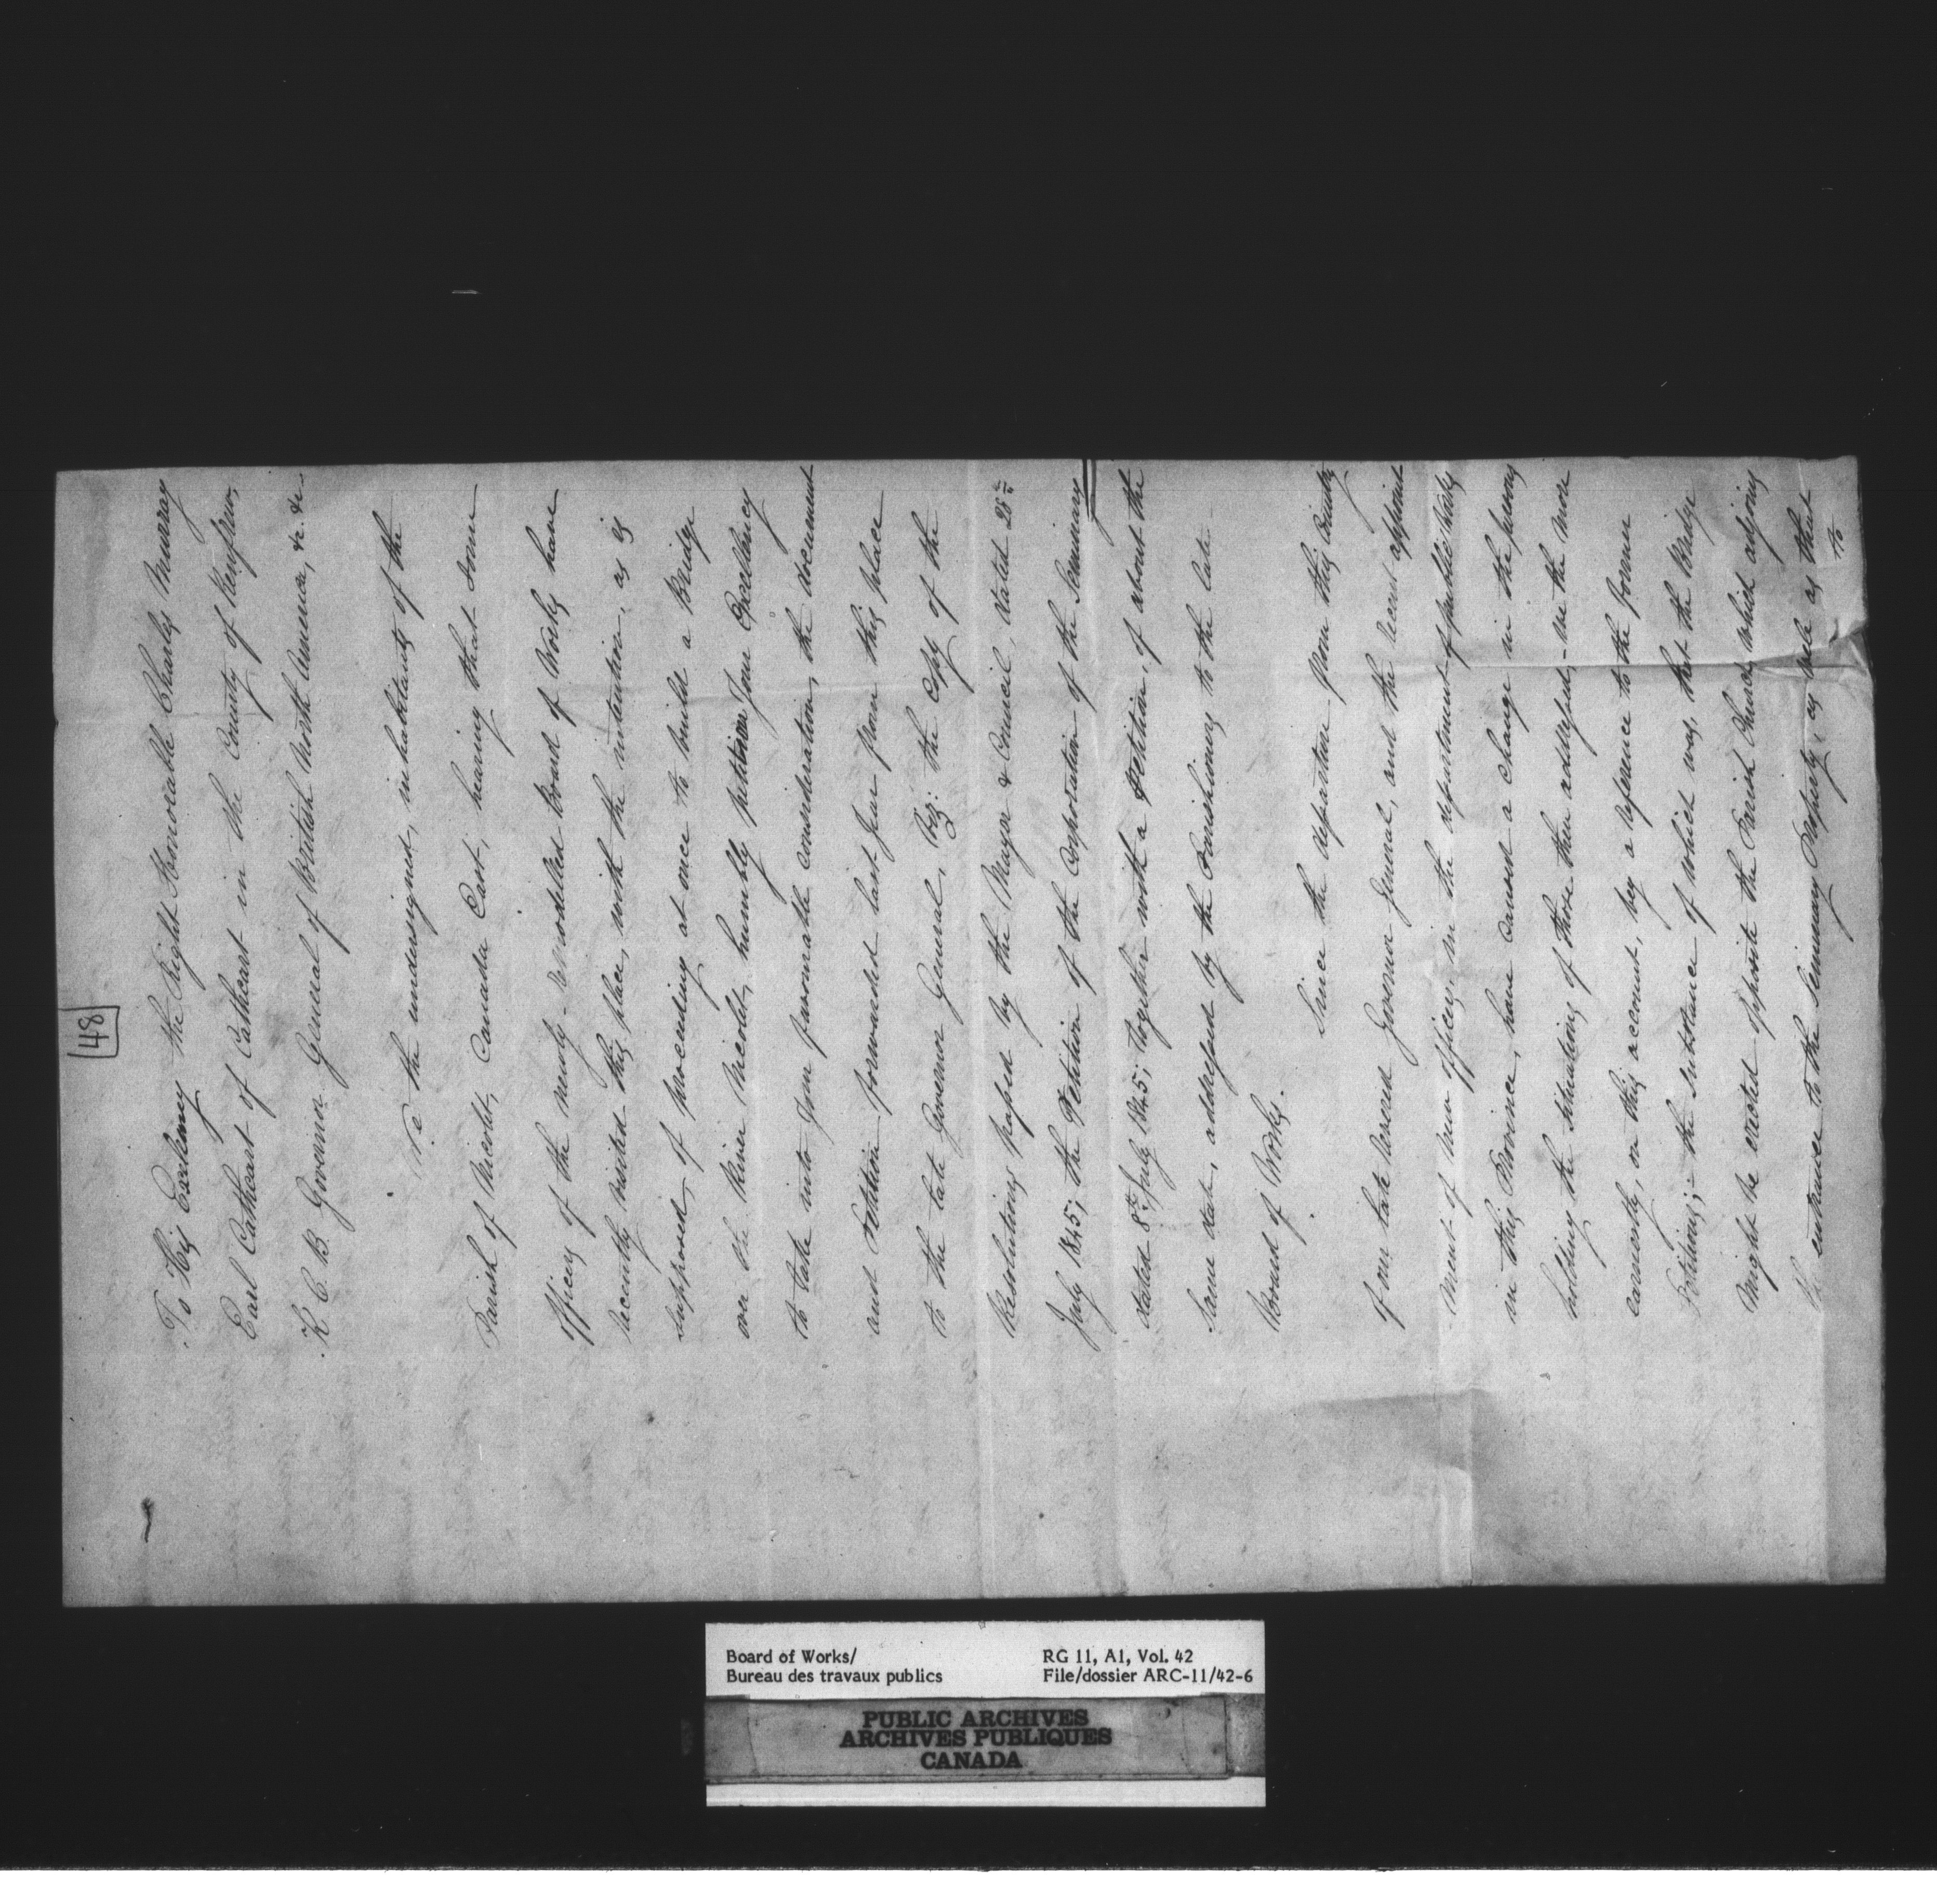 48
To His Excellency the Right Honorable Charles Murray
Earl Cathcart of Cathcart in the County of Renfrew,
K. C. B. Governor General of British North America, &c. &c.
We the undersigned, inhabitants of the
Parish of Nicolet, Canada East, hearing that some
officers of the newly-remodelled Board of Works have
recently visited this place, with the intention, as is
supposed, of proceeding at once to build a Bridge
over the River Nicolet, humbly petition Your Excellency
to take into your favourable consideration, the document
and Petition forwarded last year from this place
to the late Governor General, Viz: the Copy of the
Resolutions passed by the Mayor & Council, dated 25th
July 1845; the Petition of the Corporation of the Seminary
dated 8th July 1845; together with a Petition, of about the
same date, addressed by the Parishioners to the late
Board of Works.
Since the departure from this Country
of our late revered Governor General, and the recent appoint
ment of new officers, in the department of public Works
in this Province, have caused a change in the persons
holding the situations of those then addressed, - we the more
earnestly, on this account, beg a reference to the former
Petitions; - the substance of which was, that the Bridge
might be erected opposite the Parish Church, which adjoins
the entrance to the Seminary Property, as well as that
to
Board of Works/
Bureau des travaux publics
RG 11, A1, Vol. 42
File/dossier ARC-11/42-6
PUBLIC ARCHIVES
ARCHIVES PUBLIQUES
CANADA